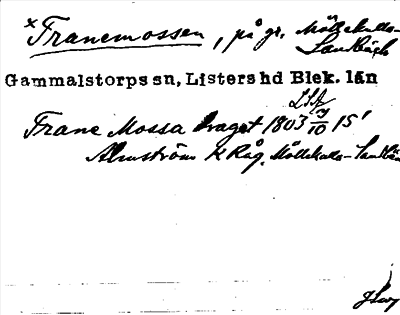 ×Franemossen, på gr. Möllekulla-
Sandbäck
Gammalstorps sn, Listers hd Blek. län
LSA
Frane Mossa Draget 1803 7/10 15'
Almström K Råg. Möllekulla-Sandbä